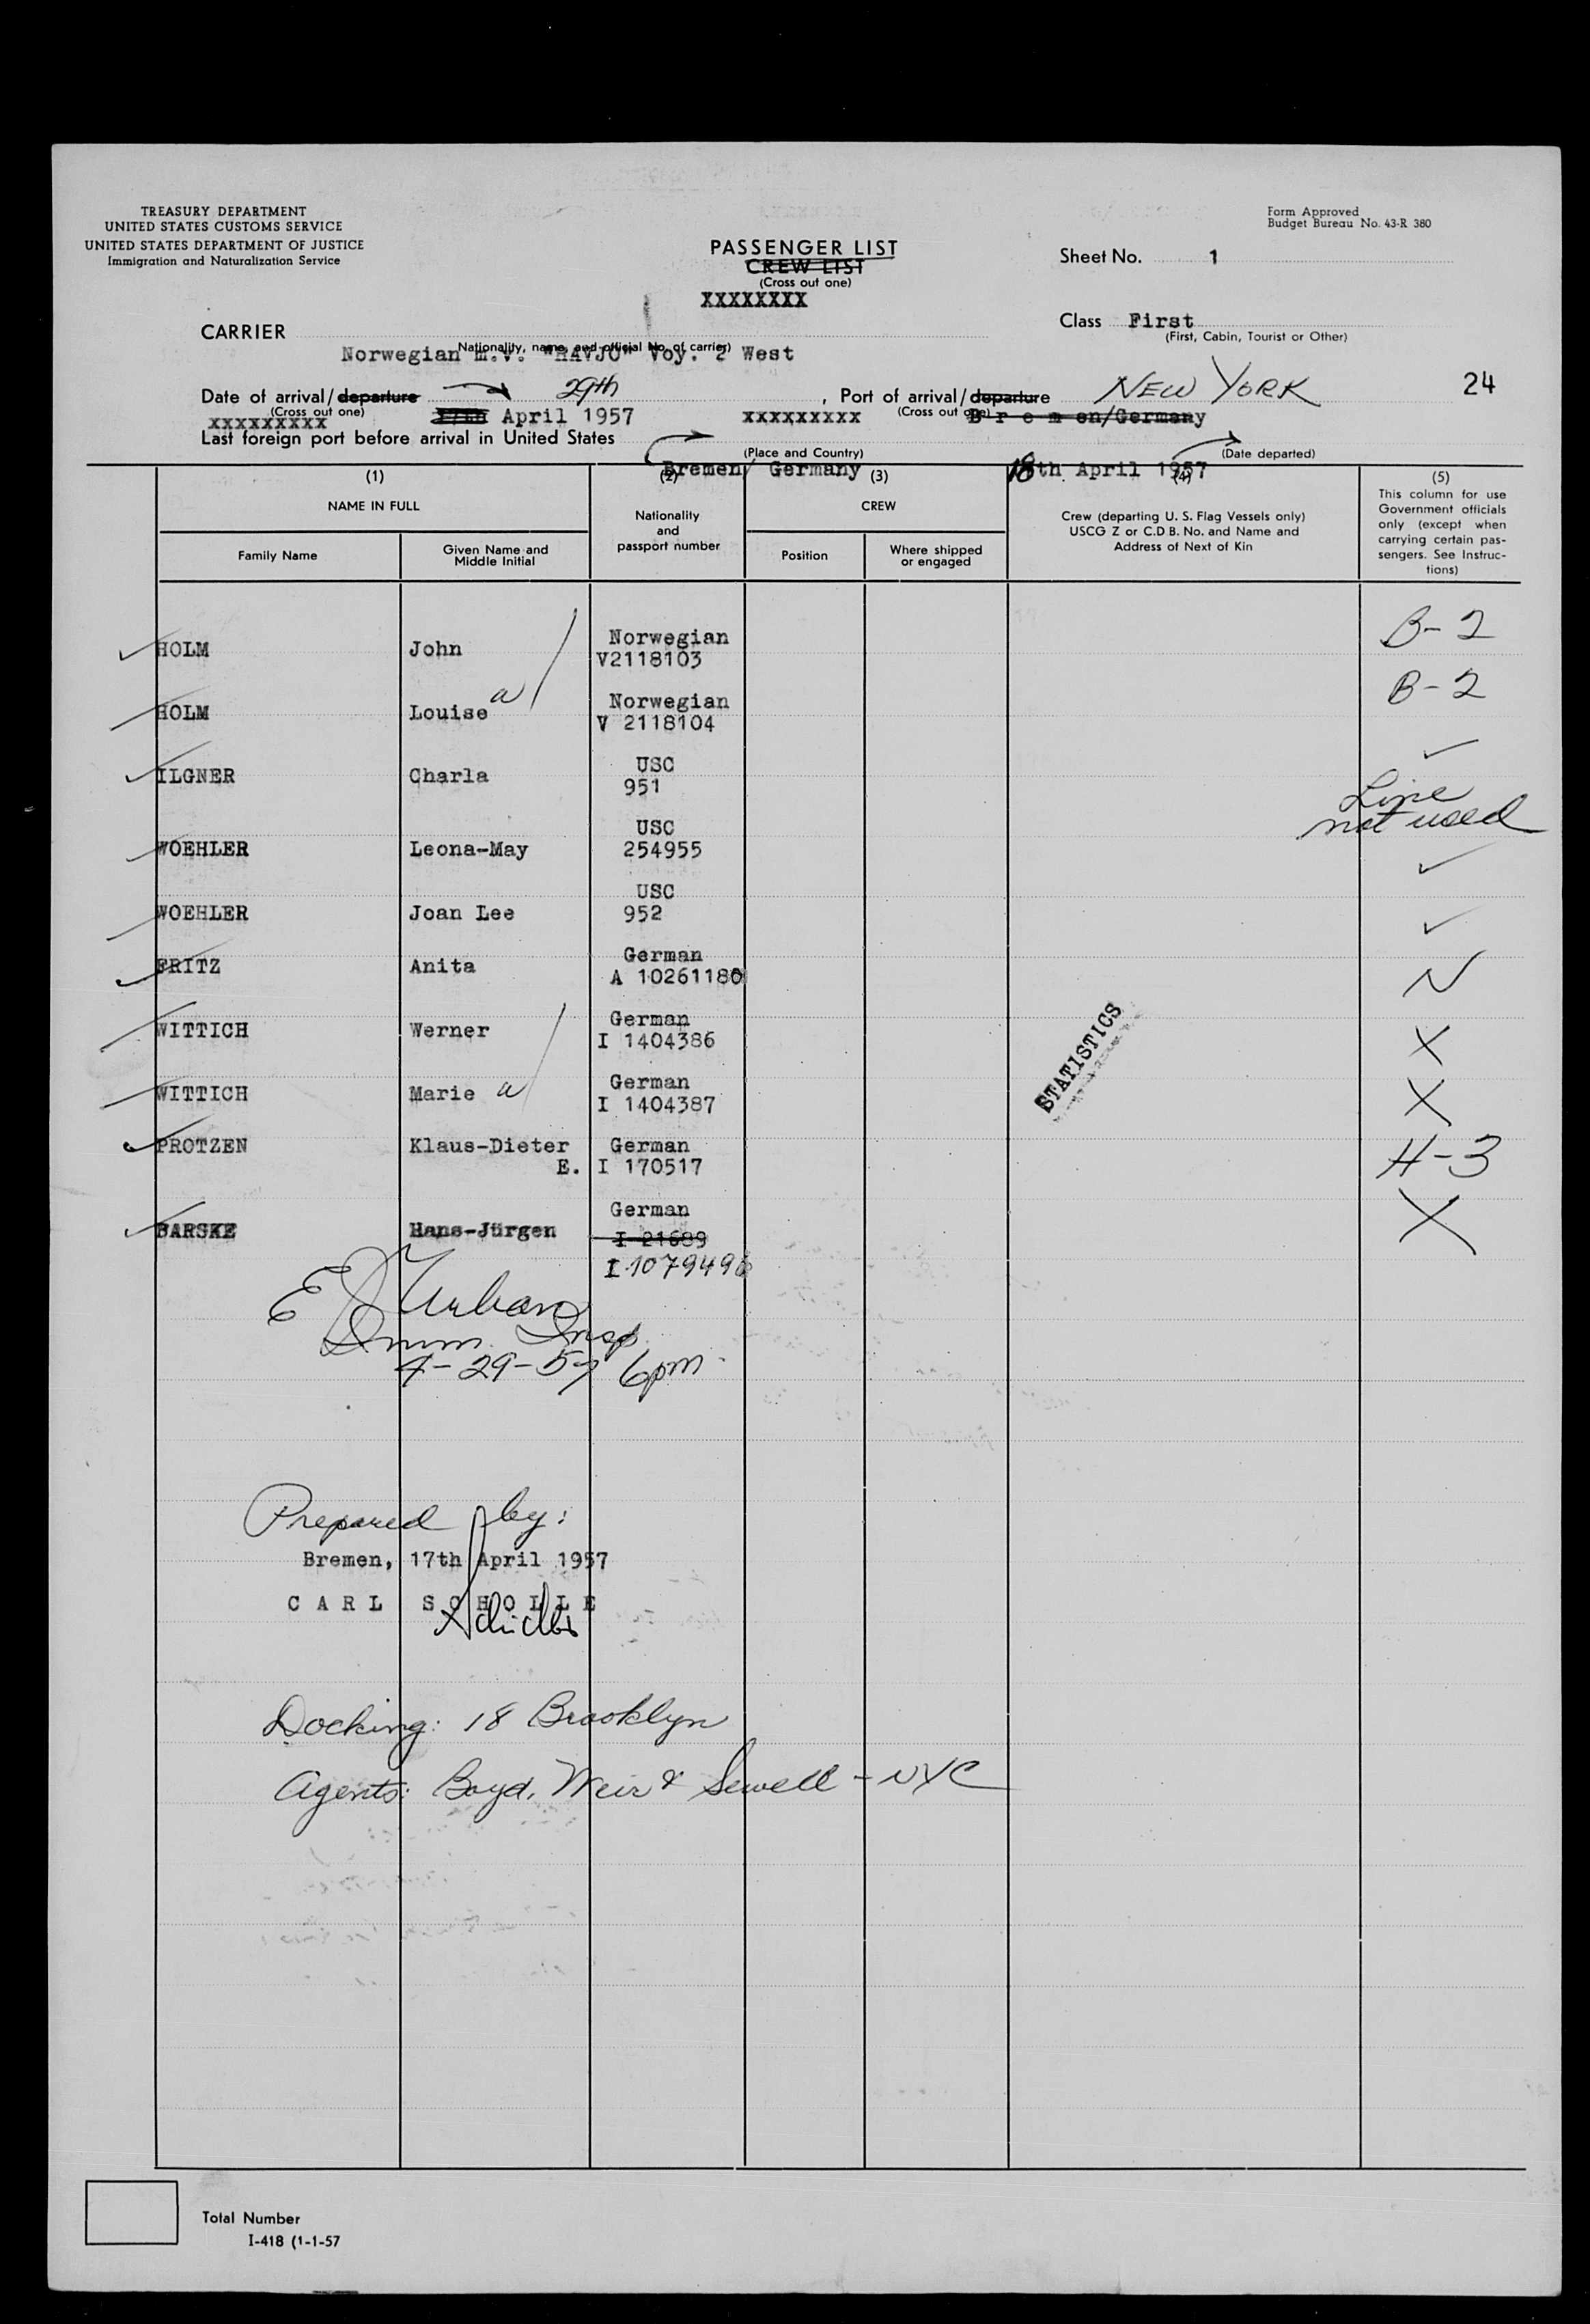 TREASURY DEPARTMENT
UNITED STATES CUSTOMS SERVICE
UNITED STATES DEPARTMENT OF JUSTICE
Immigration and Naturalization Service
Form Approved
Budget Bureau No. 43-R 380
PASSENGER LIST
CREW LIST
(Cross out one)
XXXXXXXX
Sheet No. 1
Class First
(First, Cabin, Tourist or Other)
CARRIER
(Nationality, name, and official No. of carrier)
Norwegian m.v. "HAVJO" Voy. 2 West
Date of arrival/departure 29th , Port of arrival/departure NEW YORK 24
(Cross out one) (Cross out one)
XXXXXXXXX 17th April 1957 XXXXXXXXX B r e m en/Germany
Last foreign port before arrival in United States
(Place and Country) (Date departed)
Bremen/ Germany 18th April 1957
(1) (2) (3) (4) (5)
NAME IN FULL
Family Name
Given Name and
Middle Initial
Nationality
and
passport number
CREW
Position
Where shipped
or engaged
Crew (departing U. S. Flag Vessels only)
USCG Z or C.D B. No. and Name and
Address of Next of Kin
This column for use
Government officials
only (except when
carrying certain pas-
sengers. See Instruc-
tions)
HOLM John Norwegian B-2
V2118103
HOLM Louise w Norwegian B-2
V 2118104
ILGNER Charla USC ✓
951
Line
not used
WOEHLER Leona-May USC ✓
254955
WOEHLER Joan Lee USC ✓
952
FRITZ Anita German N
A 10261180
WITTICH Werner German X
I 1404386
WITTICH Marie w German X
I 1404387
PROTZEN Klaus-Dieter German H-3
E. I 170517
BARSKE Hans-Jürgen German X
I 21689
I 1079496
STATISTICS
E J Urban
Imm. Insp.
4-29-57 6pm.
Prepared by:
Bremen, 17th April 1957
C A R L S C H O L L E
Docking: 18 Brooklyn
Agents: Boyd, Weir & Sewell - NYC
Total Number
I-418 (1-1-57